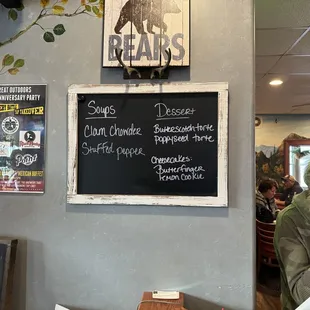 BEARS
GREAT OUTDOORS
ANNIVERSARY PARTY
Soups
Clam Chowder
Stuffed pepper
Dessert
Butterscotch torte
poppyseed torte
Cheesecakes:
Butterfinger
lemon cookie